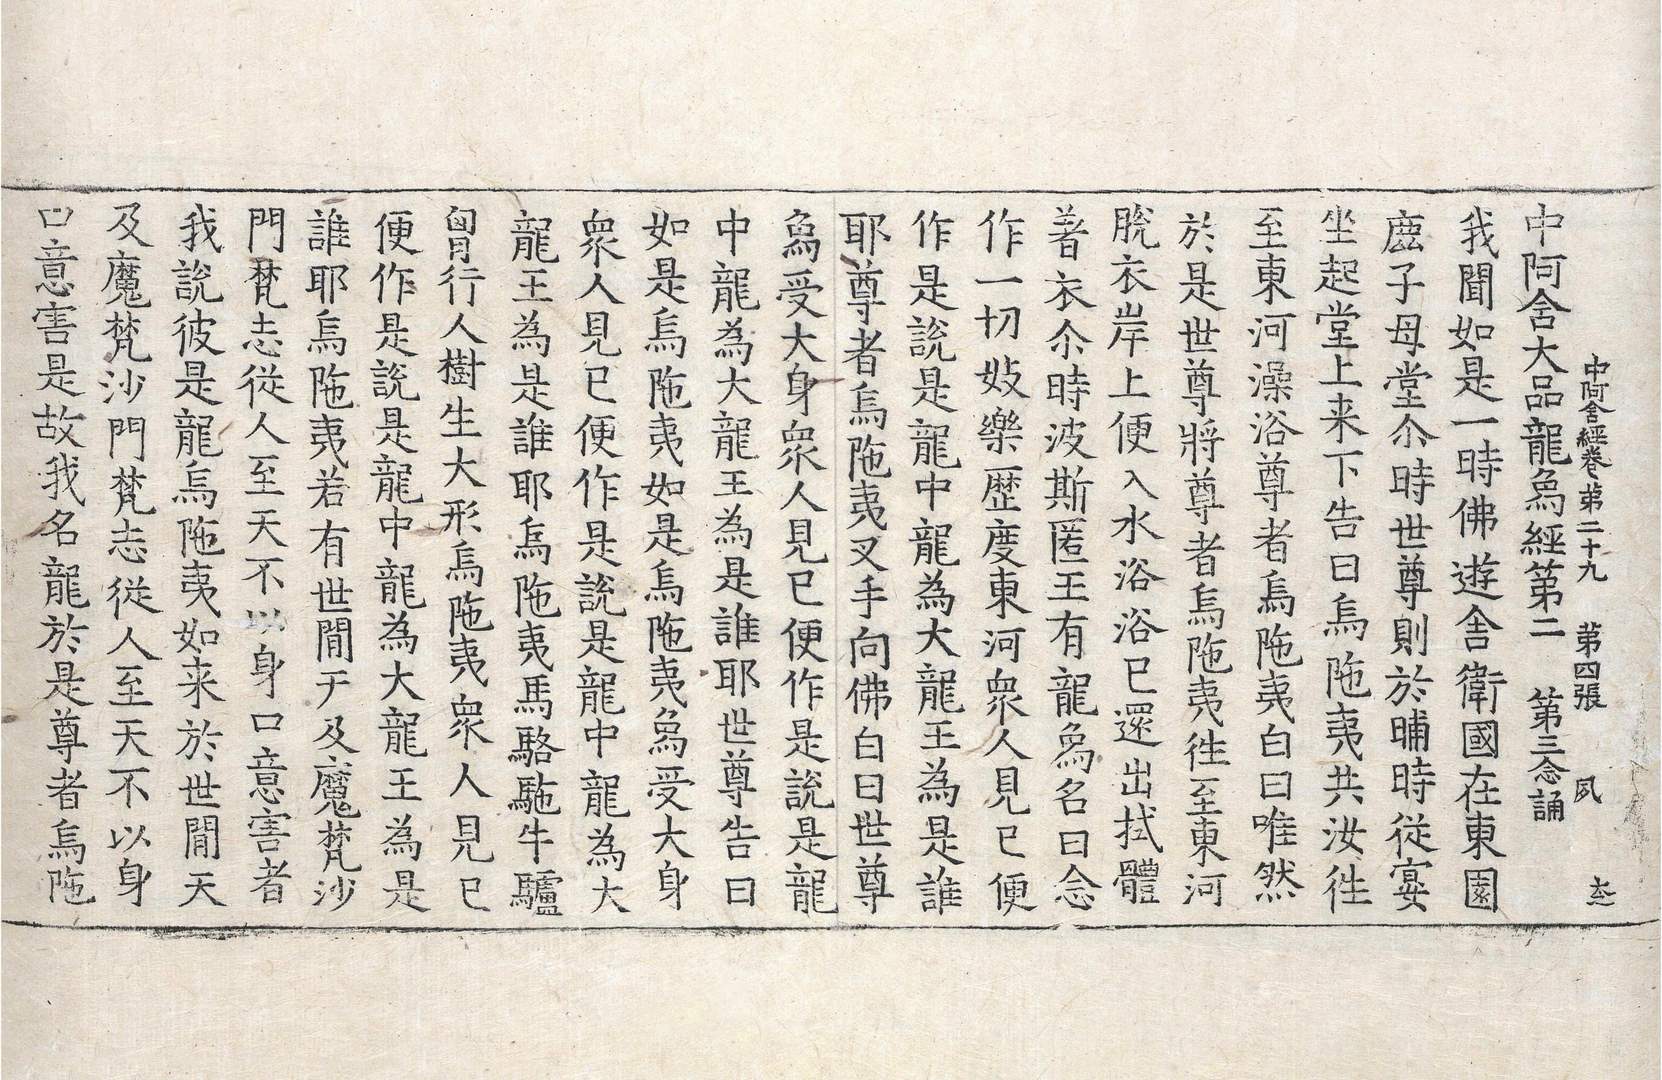 中阿含經卷第二十九 第四張 夙
中阿含大品龍象經第二 第三念誦
我聞如是一時佛遊舍衛國在東園
鹿子母堂尒時世尊則於晡時從宴
坐起堂上来下告曰烏陁夷共汝徃
至東河澡浴尊者烏陁夷白曰唯然
於是世尊將尊者烏陁夷徃至東河
脫衣岸上便入水浴浴已還出拭體
著衣尒時波斯匿王有龍象名曰念
作一切妓樂歷度東河衆人見已便
作是說是龍中龍為大龍王為是誰
耶尊者烏陁夷叉手向佛白曰世尊
象受大身衆人見已便作是說是龍
中龍為大龍王為是誰耶世尊告曰
如是烏陁夷如是烏陁夷象受大身
衆人見已便作是說是龍中龍為大
龍王為是誰耶烏陁夷馬駱駞牛驢
胷行人樹生大形烏陁夷衆人見已
便作是說是龍中龍為大龍王為是
誰耶烏陁夷若有世閒天及魔梵沙
門梵志從人至天不以身口意害者
我說彼是龍烏陁夷如来於世閒天
及魔梵沙門梵志從人至天不以身
口意害是故我名龍於是尊者烏陁